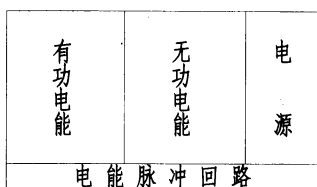 有功电能
无功电能
电源
电能脉冲回路